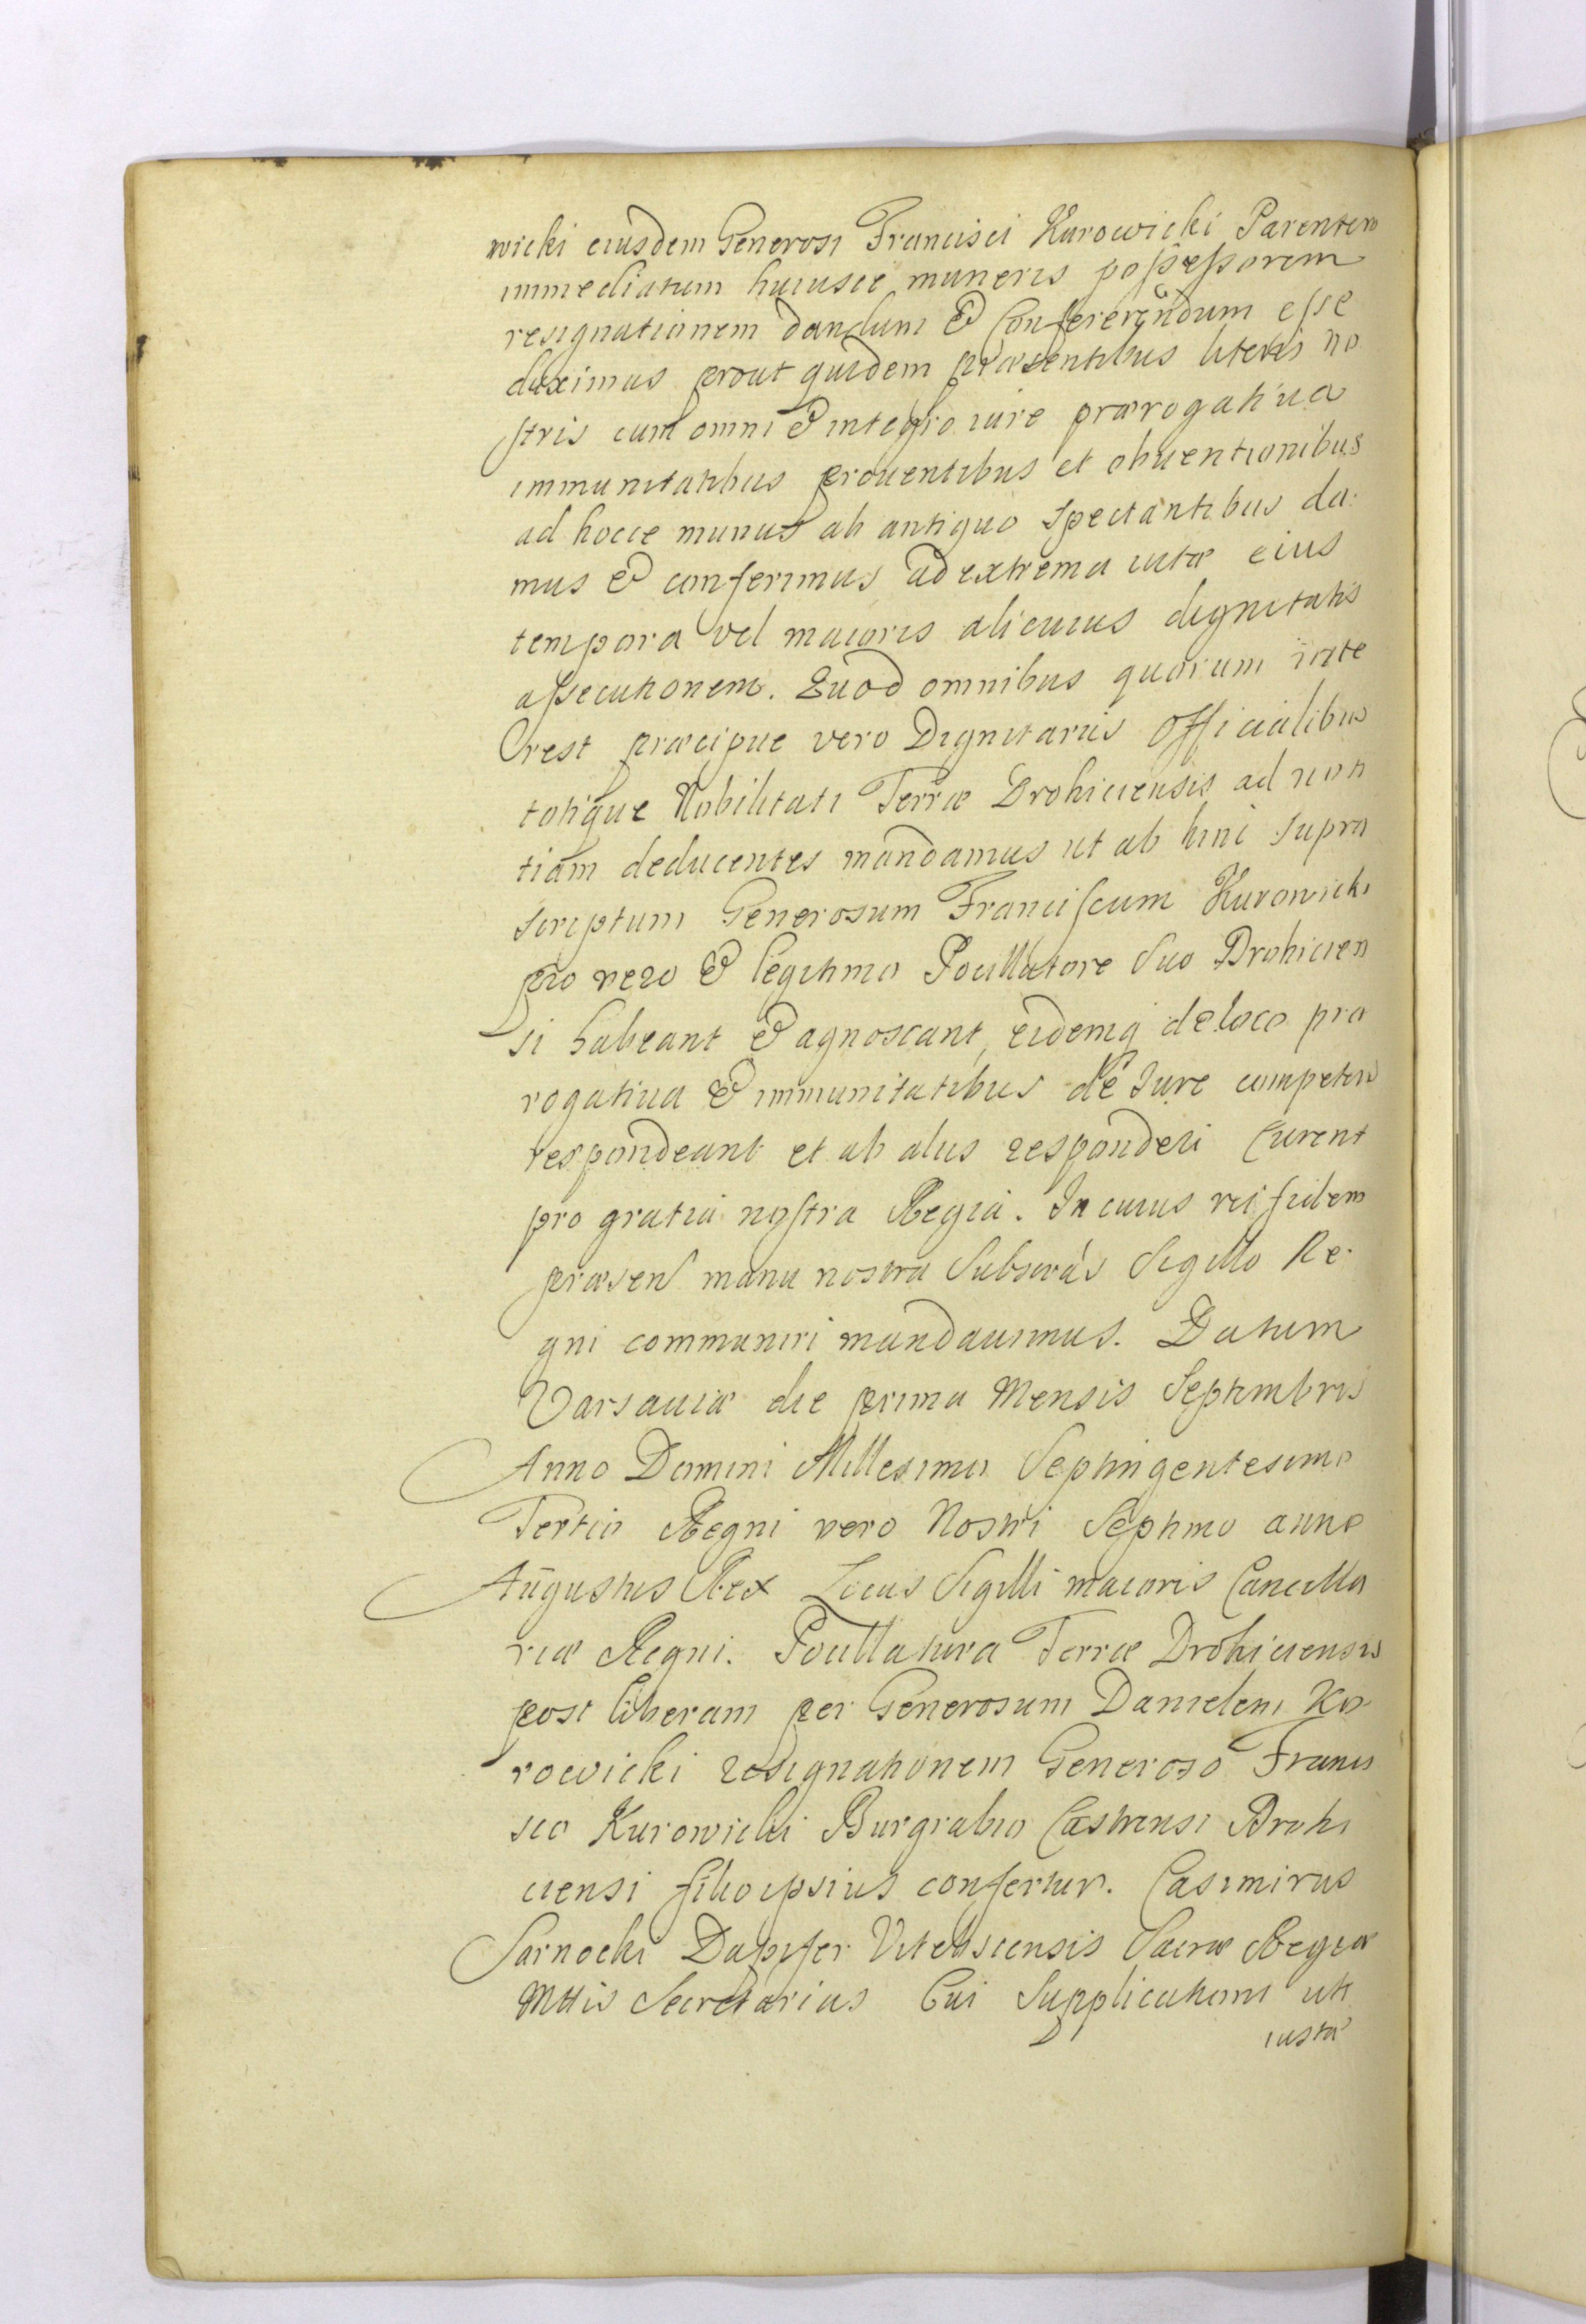 wicki eiusdem Generosi Francisci Kurowicki Parentem
immediatum huiusce muneris possessorem
resignationem dandum & Conferendum esse
duximus prout quidem præsentibus literis no
stris cum omni & integro iure prærogatiua
immunitatibus prouentibus et obuentionibus
ad hocce munus ab antiquo Spectantibus da:
mus & conferimus ad extrema uitæ eius
tempora vel maioris alicuius dignitatis
assecutionem. Quod omnibus quorum inte
rest præcipue vero Dignitariis Officialibus
totique Nobilitati Terræ Drohiciensis ad noti
tiam deducentes mandamus ut ab hinc supra
scriptum Generosum Franciscum Kurowicki
pro vero & legitimo Pocillatore Suo Drohicien
si habeant & agnoscant, eidemq de loco præ
rogatiua & immunitatibus de Jure competen
respondeant et ab aliis responderi Curent
pro gratia nostra Regia. In cuius rei fidem
præsen manu nostra Subscrās Sigillo Re-
gni communiri mandauimus. Datum
Varsauiæ die prima Mensis Septembris
Anno Domini Millesimo Septingentesimo
Tertio Regni vero Nostri Septimo anno
Augustus Rex Locus Sigilli maioris Cancella
riæ Regni. Pocillatura Terræ Drohiciensis
post liberam per Generosum Danielem Ku
rowicki resignationem Generoso Francis
sco Kurowicki Burgrabio Castrensi Drohi
ciensi filio ipsius confertur. Casimirus
Sarnocki Dapifer Vitebscensis Sacræ Regiæ
Mttis Secretarius Cui Supplicationi uti
iustæ